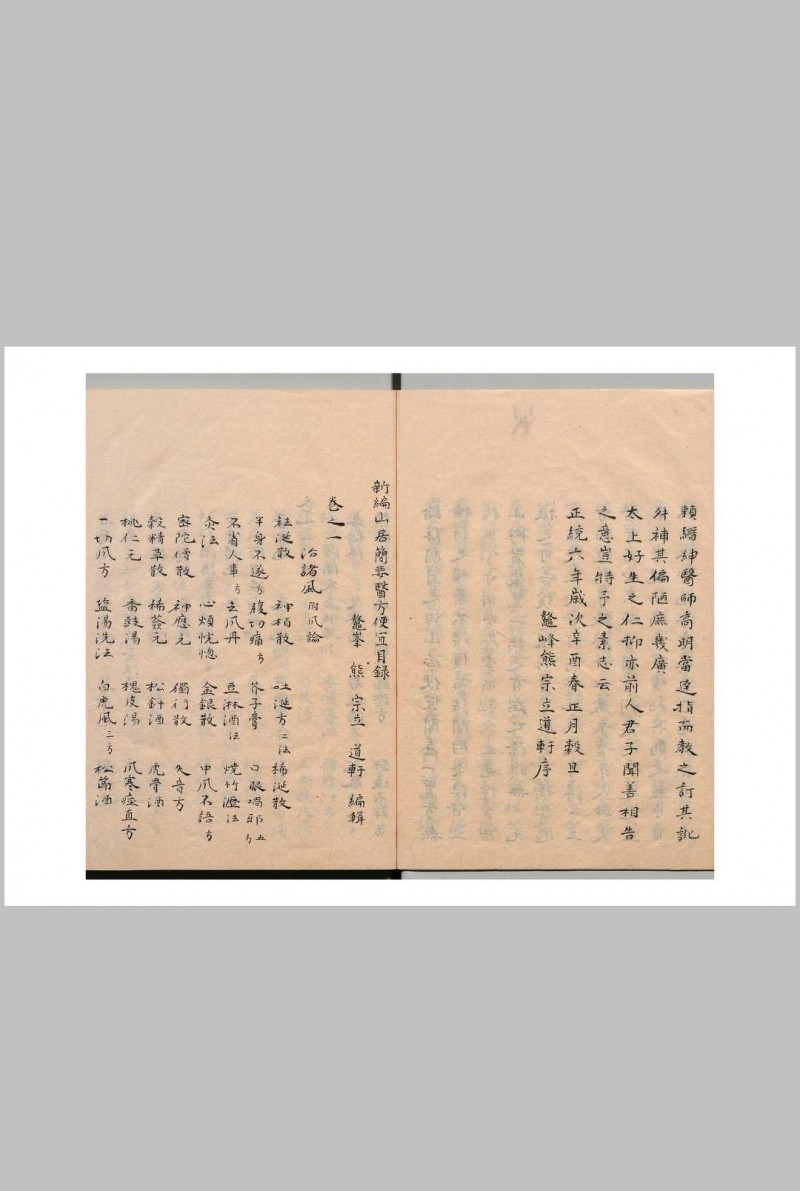 賴縉紳醫師高明當達指而教之訂其訛
舛補其偏陋庶幾廣
太上好生之仁抑亦前人君子聞善相告
之意豈特予之素志云
正統六年歲次辛酉春正月穀旦
鰲峰熊宗立道軒序
新編山居簡要醫方便宜目錄
鰲峯 熊 宗立 道軒 編輯
卷之一
治諸風 附爪論
祛涎散 神栢散 吐涎方二法 稀涎散
半身不遂方 腹切痛方 芥子膏 口眼喎邪五方
不省人事方 玄爪丹 豆淋酒法 燒竹瀝法
灸法 心煩恍惚 金銀散 中爪不語方
密陀僧散 神應元 獨行散 失音方
穀精草散 稀薟元 松針酒 虎骨酒
桃仁元 香豉湯 槐皮湯 爪寒痙直方
一切爪方 塩湯洗法 白虎風三方 松節酒